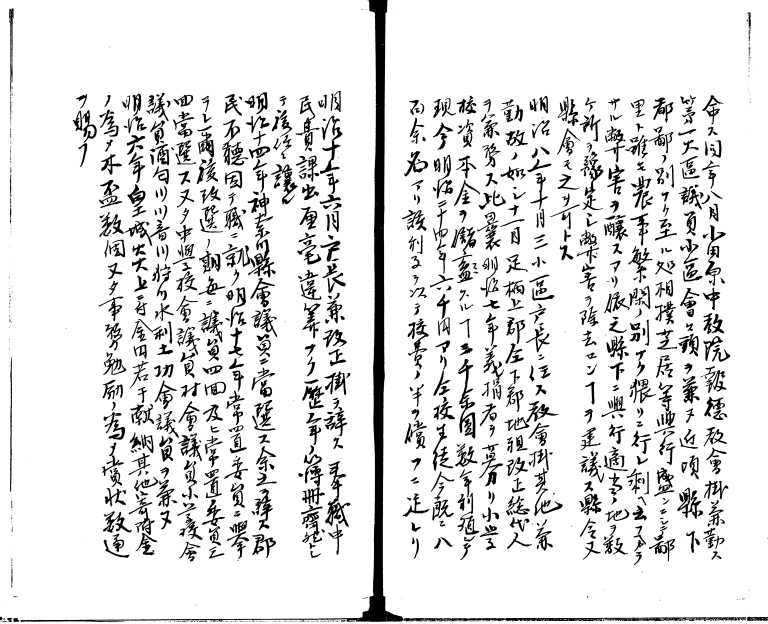 命ス同年八月小田原中教院報徳教會掛兼勤ス
第一大區議員小區會々頭ヲ兼ヌ近頃縣下
都鄙ノ別ナク至ル処相撲芝居等興行盛ンニシテ鄙
里ト雖モ農事繁閑ノ別ナク猥リニ行レ剰ヘ
サル弊害ヲ醸スアリ依之縣下ニ興行適當ノ地数
ケ所ヲ豫定シ弊害ヲ除去センヿヲ建議ス縣令又
縣會モ之ヲ可トス
明治八年十月三小區戸長ニ任ス教會掛其他兼
勤故ノ如シ十一月足柄上郡仝下郡地租改正総代人
ヲ兼務ス此曩明治七年義捐者ヲ募リ小學
校資本金ヲ儲蓄スルヿ三千余圓数年利殖シテ
現今明治二十四年六千円アリ仝校生徒今既ニ八
百余名アリ該利子ヲ以テ校費ノ半ヲ償フニ足レリ
明治十一年六月戸長兼改正掛ヲ辞ス奉職中
民費課出厘毫違算ナク歴年ノ簿冊齊然シ
テ後任ニ譲ル
明治十四年神奈川縣會議員ニ當選ス余之ヲ辞ス郡
民不聴因テ職ニ就ク明治十七年常置委員ニ興挙
ラレ爾後改選ノ期毎ニ議員四回及ヒ常置委員三
四當選ス又タ中學々校會議員村會議員水災豫會
議員酒匂川川音川狩川水利土功會議員ヲ兼ヌ
明治六年皇城炎上ニ付金円若干献納其他寄附金
ノ為メ木盃数個又タ事務勉励ノ為メ賞状数通
ヲ賜フ